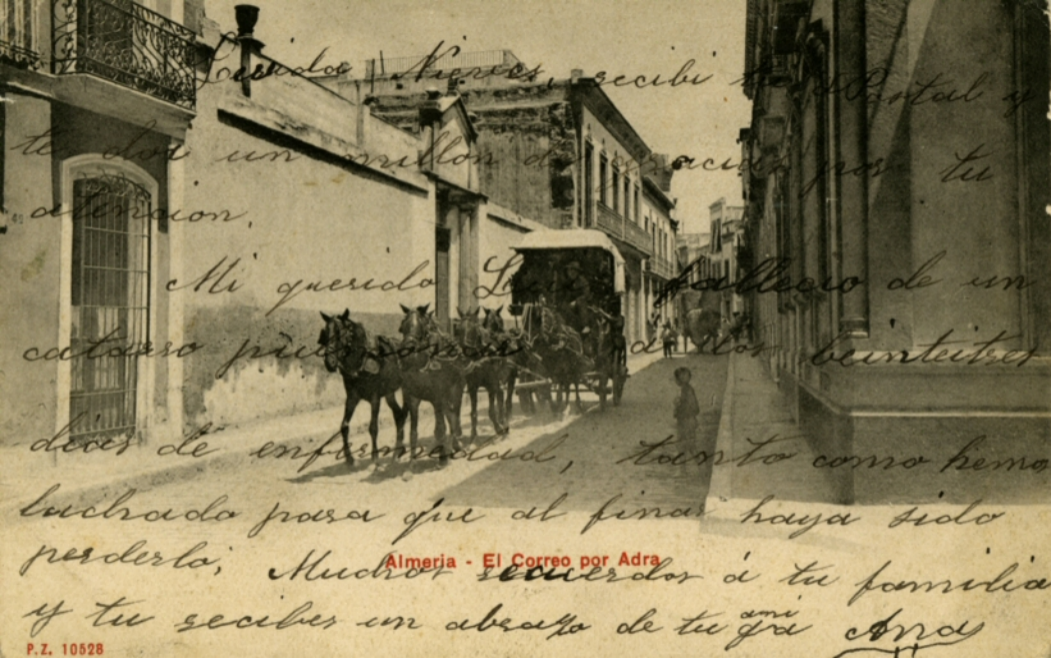 Querida Nieves, recibi tu Postal y
te doi un millon de gracias por tu
atencion.
Mi querido Luis fallecio de un
catarro pulmonar a los beinteitres
dias de enfermedad, tanto como hemos
luchado para que al final haya sido
perderlo; Muchos recuerdos á tu familia
Almeria - El Correo por Adra
y tu recibes un abrazo de tu ami
ga Ana
P.Z. 10528